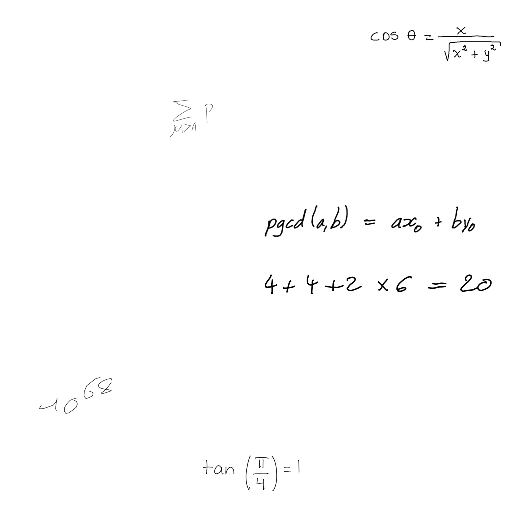 cos θ = x / √(x² + y²)
∑_{μ>1} p
pgcd(a,b) = ax₀ + by₀
4 + 4 + 2 × 6 = 20
10⁶⁸
tan (π/4) = 1